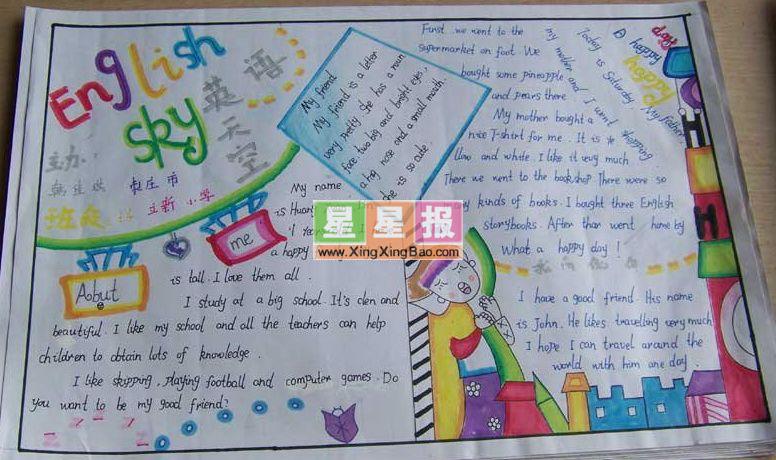 English
sky
英语
天空
主办:
枣庄市
立新小学
My friend
My friend is a letter
very pretty. She has a roun
face. two big and bright eyes,
a big nose and a small mouth.
he is so cute
About
me
My name
is Huang
a happy
is tall. I love them all.
I study at a big school. It's clen and
beautiful. I like my school and all the teachers can help
children to obtain lots of knowledge.
I like skipping, playing football and computer games. Do
you want to be my good friend?
星星报
www.XingXingBao.com
A happy day
happy
Today is Saturday. My father,
my mother and I went shopping
First we went to the
supermarket on foot. We
bought some pineapple
and pears there.
My mother bought a
nice T-shirt for me. It is
llow and white. I like it very much.
There we went to the bookshop. There were so
ny kinds of books. I bought three English
storybooks. After than went home by
What a happy day!
I have a good friend. His name
is John. He likes travelling very much
I hope I can travel around the
world with him one day.
H
H